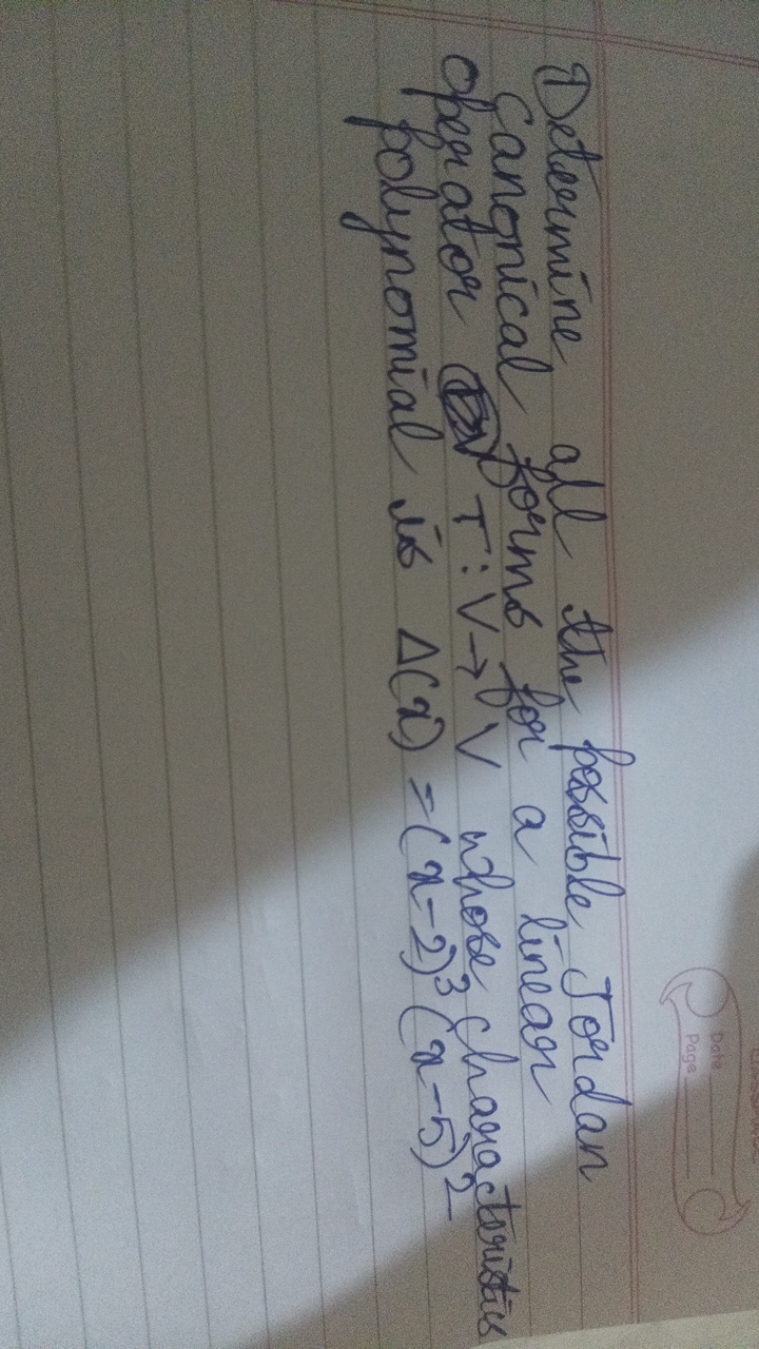 ① Determine all the possible Jordan
canonical forms for a linear
operator T : V → V whose characteristics
polynomial is Δ(x) = (x-2)³ (x-5)²
Date
Page